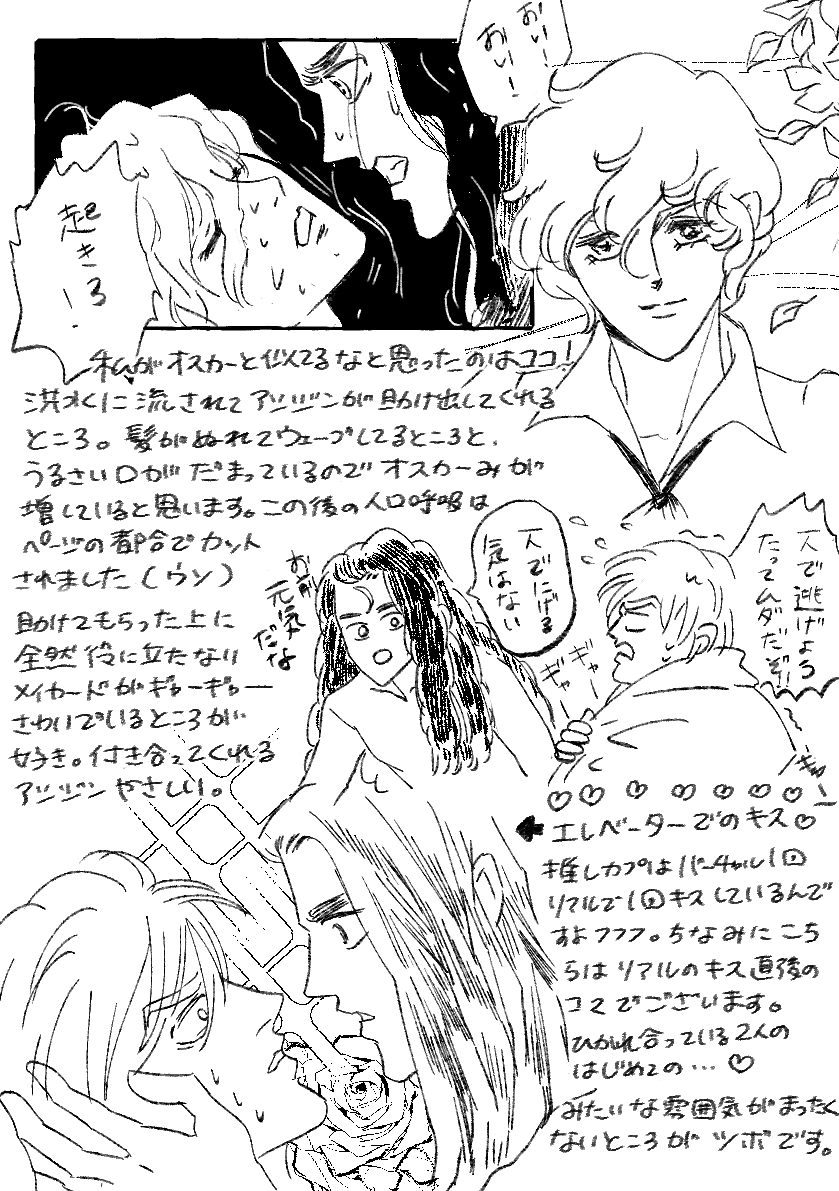 おいー
おいー!
起きろー!
私がオスカーと似てるなと思ったのはココ!
洪水に流されてアシジンが助け出してくれる
ところ。髪がぬれてウェーブしてるところと、
うるさい口がだまっているのでオスカーみが
増していると思います。この後の人口呼吸は
ページの都合でカット
されました(ウソ)
お前
元気
だな
一人でにげる
気はない
一人で逃げよう
たってムダだぞ!!
ギャー
ギャー
ぎゅ
助けてもらった上に
全然役に立たない
メイカードがギャーギャー
さわいでいるところが
好き。付き合ってくれる
アシジンやさしい。
♡♡♡♡♡♡♡
←エレベーターでのキス♡
推しカプはバーチャル1回
リアルで1回キスしているんで
すよフフフ。ちなみにこち
らはリアルのキス直後の
コマでございます。
ひかれ合っている2人の
はじめての…♡
みたいな雰囲気がまったく
ないところがツボです。